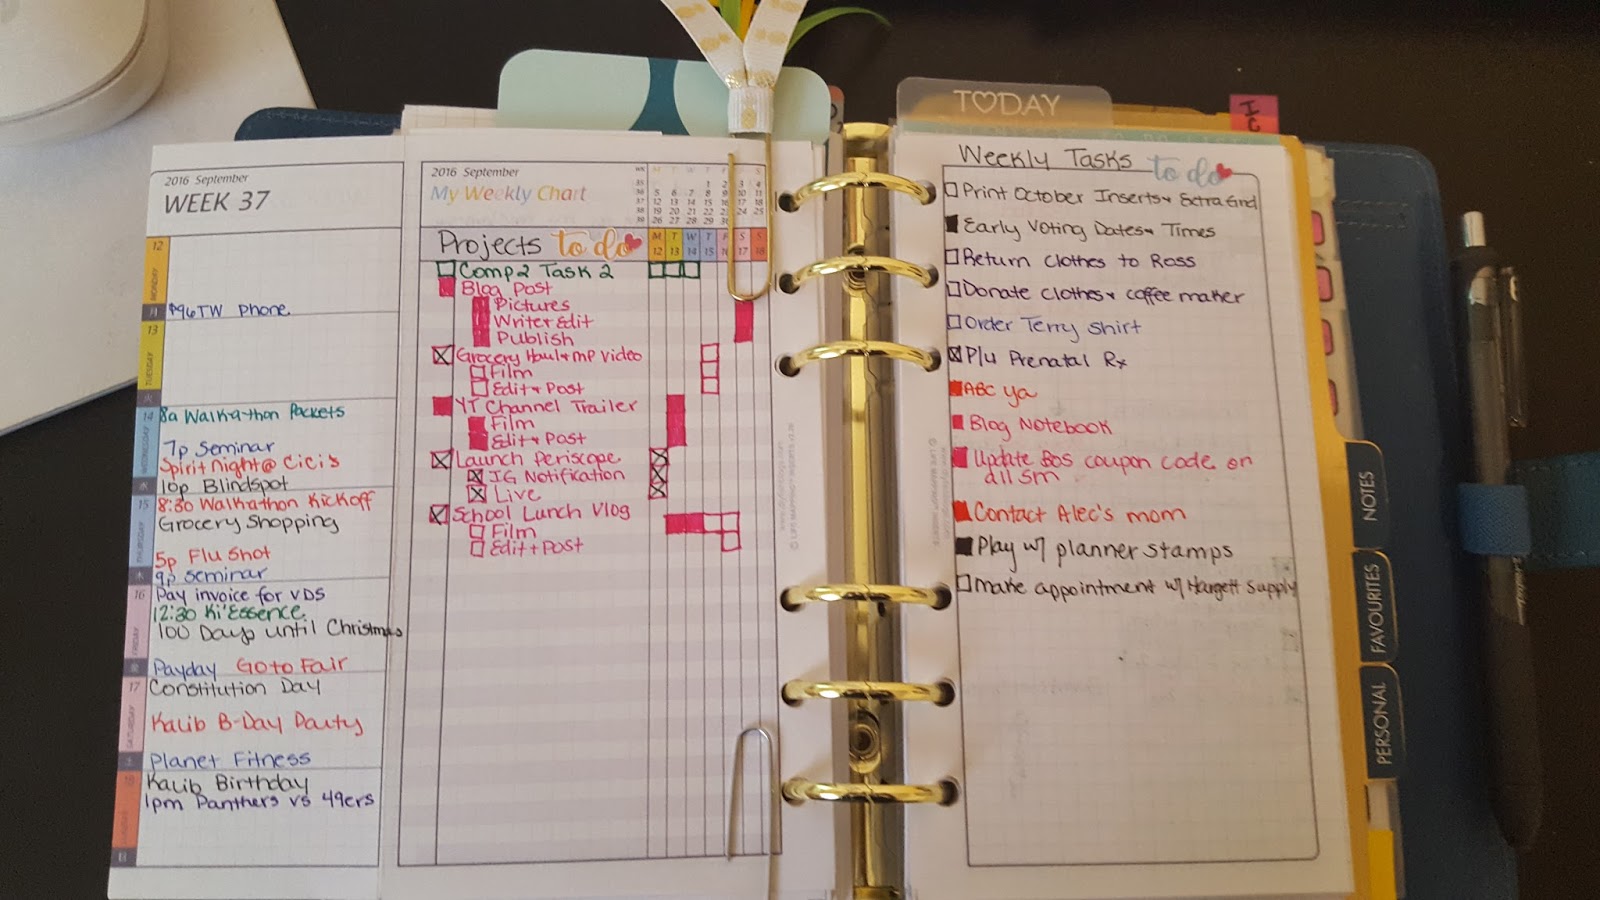 2016 September
WEEK 37
12
MONDAY
月
$96 TW Phone
13
TUESDAY
火
14
WEDNESDAY
水
8a Walk-a-thon Packets
7p Seminar
Spirit Night @ CiCi's
10p Blindspot
15
THURSDAY
木
8:30 Walkathon Kickoff
Grocery Shopping
5p Flu Shot
9p Seminar
16
FRIDAY
金
Pay invoice for VDS
12:30 Ki'Essence
100 Days until Christmas
Payday Go to Fair
17
SATURDAY
土
Constitution Day
Kalib B-Day Party
Planet Fitness
日
Kalib Birthday
1pm Panthers vs 49ers
2016 September
My Weekly Chart
WK M T W T F S S
35 1 2 3 4
36 5 6 7 8 9 10 11
37 12 13 14 15 16 17 18
38 19 20 21 22 23 24 25
39 26 27 28 29 30
Projects to do
M T W T F S S
12 13 14 15 16 17 18
Comp 2 Task 2
Blog Post
Pictures
Write + Edit
Publish
Grocery Haul + MP Video
Film
Edit + Post
YT Channel Trailer
Film
Edit + Post
Launch Periscope
IG Notification
Live
School Lunch Vlog
Film
Edit + Post
TODAY
Weekly Tasks to do
Print October Inserts + Extra Grid
Early Voting Dates + Times
Return clothes to Ross
Donate clothes + coffee maker
Order Terry shirt
P/u Prenatal Rx
ABC ya
Blog Notebook
Update BOS coupon code on
all SM
Contact Alec's mom
Play w/ planner stamps
Make appointment w/ Hargett Supply
NOTES
FAVOURITES
PERSONAL